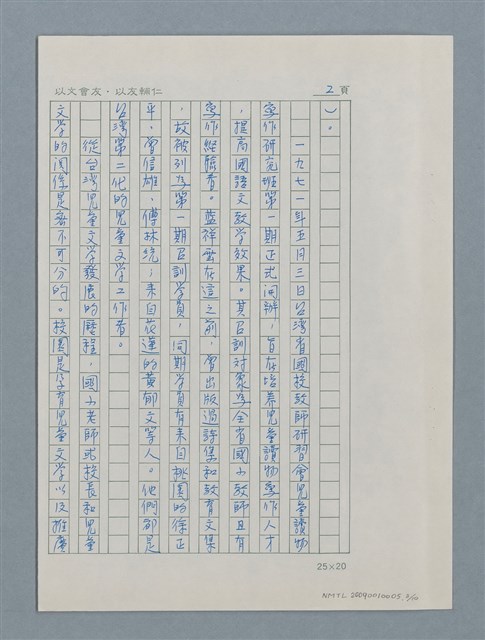 以文會友・以友輔仁
2頁
)。
一九七一年五月三日台灣省國校教師研習會兒童讀物
寫作研究班第一期正式開辦,旨在培養兒童讀物寫作人才
,提高國語文教學效果。其召訓對象為全省國小教師且有
寫作經驗者。藍祥雲在這之前,曾出版過詩集和教育文集
,故被列為第一期召訓學員,同期學員有來自桃園的徐正
平,曾信雄,傅林統;來自花蓮的黃郁文等人。他們都是
台灣第二代的兒童文學工作者。
從台灣兒童文學發展的歷程,國小老師或校長和兒童
文学的関係是密不可分的。校園是孕育兒童文学以及推廣
25×20
NMTL 20090010005.2/10